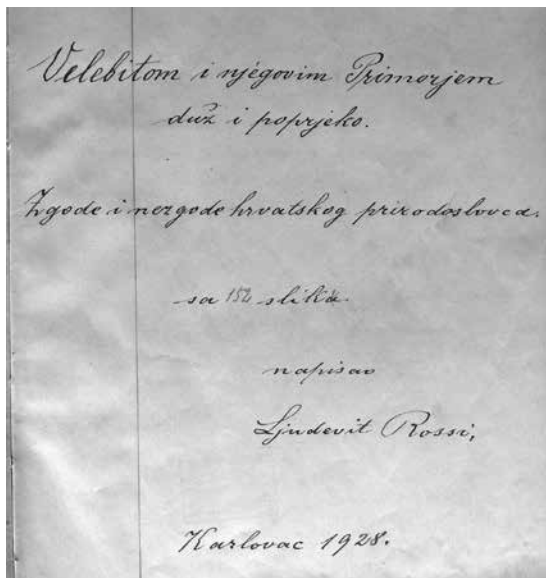 Velebitom i njegovim Primorjem
duž i poprjeko.
Zgode i nezgode hrvatskog prirodoslovca.
sa 152 slika.
napisao
Ljudevit Rossi,
Karlovac 1928.